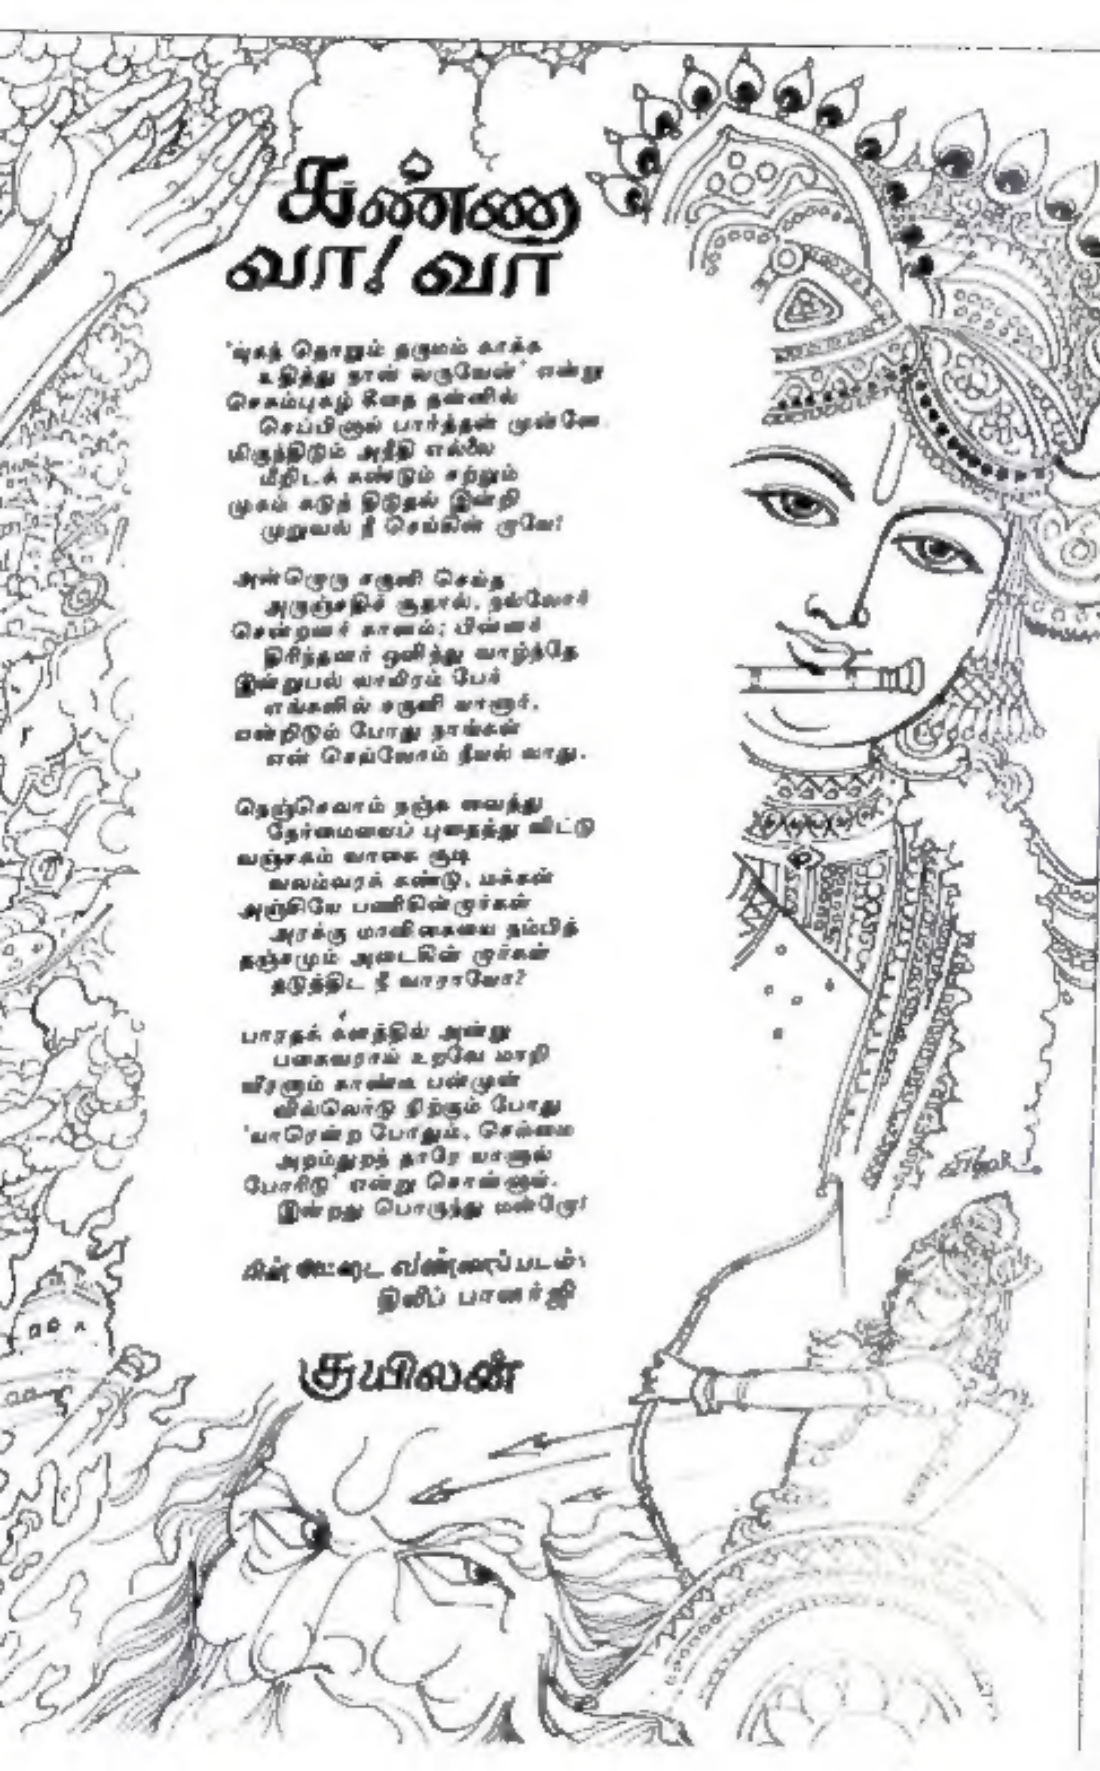 கண்ணா
வா! வா
'யுகந் தொறும் தருமம் காக்க
உதித்து நான் வருவேன்' என்று
செகம்புகழ் கீதை தன்னில்
செப்பினாய் பார்த்தன் முன்னே.
மிகுந்திடும் அநீதி எல்லை
மீறிடக் கண்டும் சற்றும்
முகம் கடுத் திடுதல் இன்றி
முறுவல் நீ செய்கின் றாயே!
அன்றொரு சகுனி செய்த
அருஞ்சதிச் சூதால், நல்லோர்
சென்றனர் கானம்; பின்னர்
திரிந்தனர் ஒளித்து வாழ்ந்தே
இன்றுபல் லாயிரம் பேர்
எங்களில் சகுனி யானார்,
என்றிடும் போது நாங்கள்
என் செய்வோம் நீயல் லாது.
நெஞ்செலாம் நஞ்சு வைத்து
நேர்மையைப் புதைத்து விட்டு
வஞ்சகம் வாகை சூடி
வலம்வரக் கண்டு, மக்கள்
அஞ்சியே பணிகின்றார்கள்
அரக்கு மாளிகையை நம்பித்
தஞ்சமும் அடைகின் றார்கள்
தடுத்திட நீ வாராயோ?
பாரதக் களத்தில் அன்று
பகைவராய் உறவே மாறி
வீரனாம் காண்டீ பன்முன்
வில்லொடு நிற்கும் போது
'யாரென்ற போதும், செம்மை
அறம்துறந் தாரே யானால்
போரிடு' என்று சொன்னாய்.
இன்றது பொருந்து மன்றோ!
பின் அட்டை வண்ணப்படம்:
திலீப் பானர்ஜி
குயிலன்